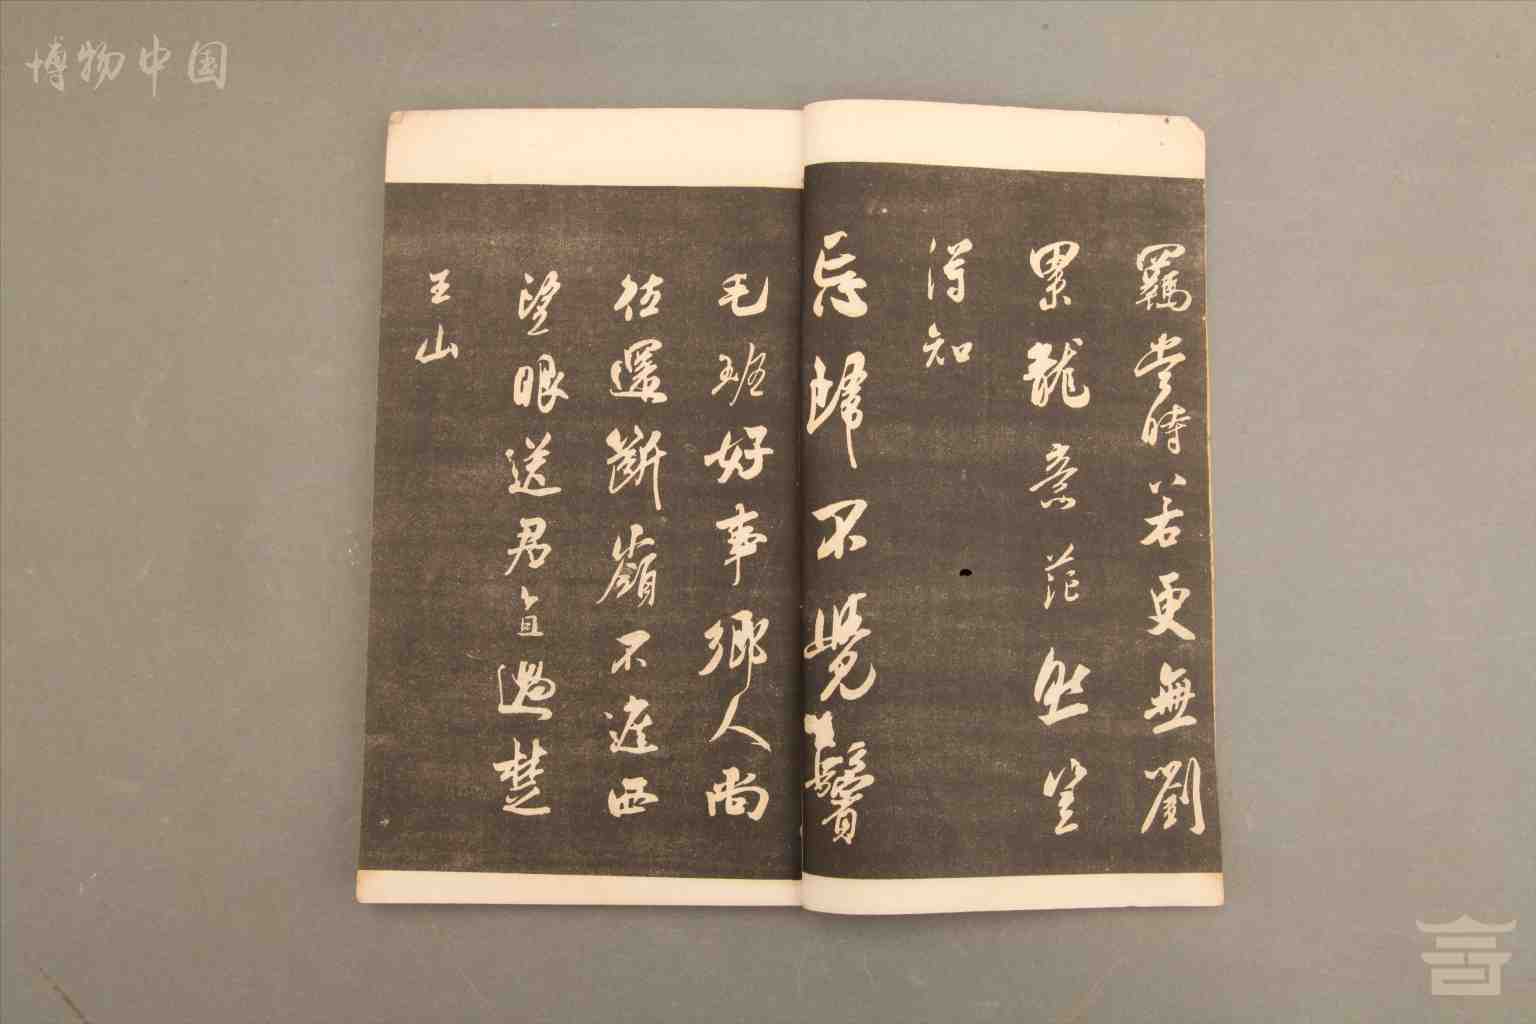 博物中国
羈當時若更無劉
累龍意茫然豈
得知
忘歸不覺鬢
毛班好事鄉人尚
往還斷嶺不遮西
望眼送君直過楚
王山